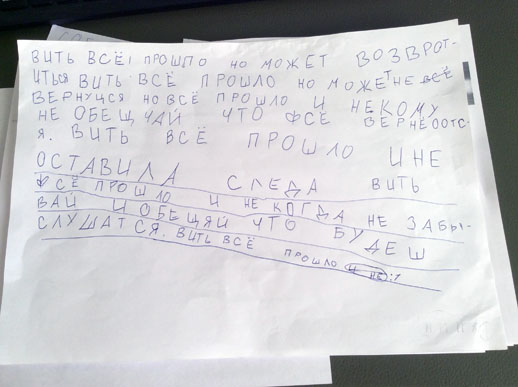 ВИТЬ ВСЁ! ПРОШЛО НО МОЖЕТ ВОЗВРОТ-
ИТЬСЯ ВИТЬ ВСЁ ПРОШЛО НО МОЖЕТ НЕ ВСЁ
ВЕРНУЦСЯ НО ВСЁ ПРОШЛО И НЕКОМУ
НЕ ОБЕЩЧАЙ ЧТО ФСЁ ВЕРНЕООТС-
Я. ВИТЬ ВСЁ ПРОШЛО И НЕ
ОСТАВИЛА СЛЕДА ВИТЬ
ФСЁ ПРОШЛО И НЕ КОГДА НЕ ЗАБЫ-
ВАЙ И ОБЕЩЯЙ ЧТО БУДЕШ
СЛУШАТСЯ. ВИТЬ ВСЁ ПРОШЛО И НЕ